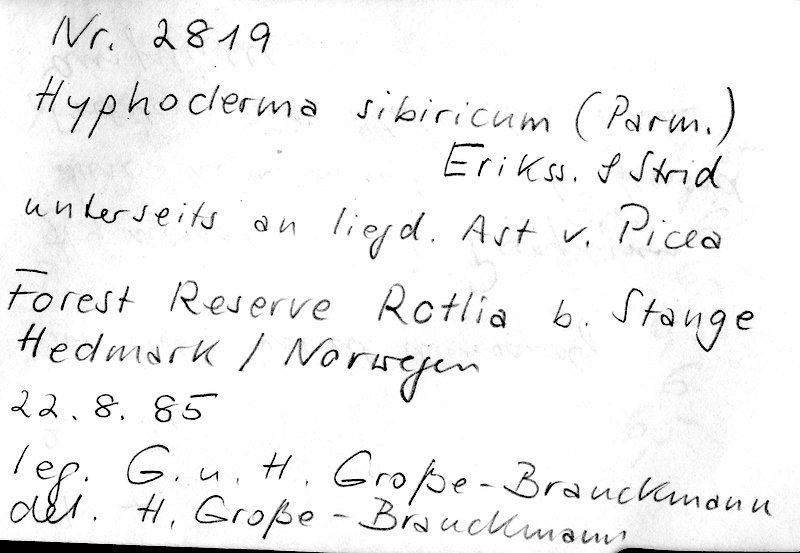 Nr. 2819
Hyphoderma sibiricum (Parm.)
Erikss. & Strid
unterseits an liegd. Ast v. Picea
Forest Reserve Rotlia b. Stange
Hedmark / Norwegen
22. 8. 85
leg. G. u. H. Große-Brauckmann
det. H. Große-Brauckmann